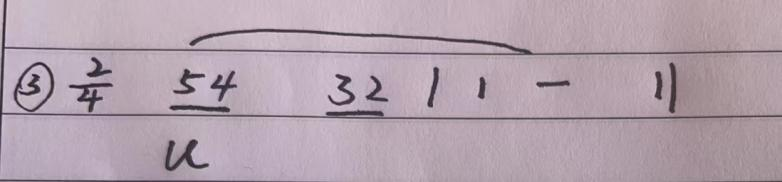 ③ 2/4 54 32 | 1 - ||
u